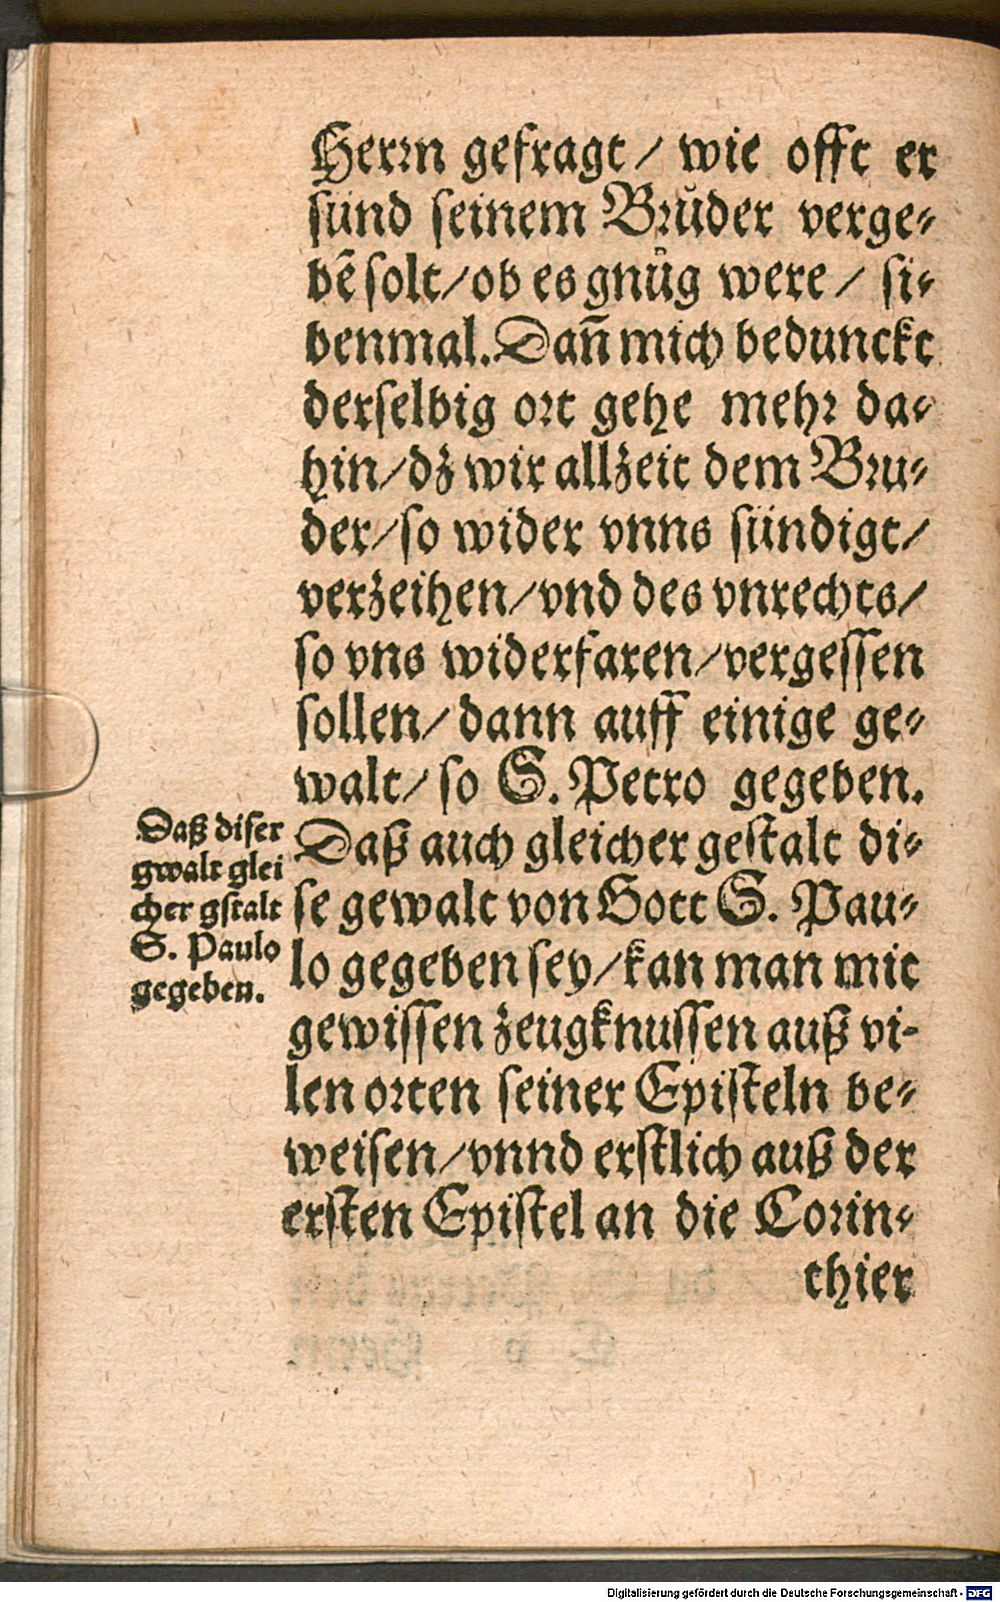 Herrn gefragt / wie offt er
sünd seinem Brůder verge⸗
bẽ solt / ob es gnůg were / si⸗
benmal. Dañ mich bedunckt
derselbig ort gehe mehr da⸗
hin / dz wir allzeit dem Bru⸗
der / so wider vnns sündigt /
verzeihen / vnd des vnrechts /
so vns widerfaren / vergessen
sollen / dann auff einige ge⸗
walt / so S. Petro gegeben.
Daß auch gleicher gestalt di⸗
se gewalt von Gott S. Pau⸗
lo gegeben sey / kan man mit
gewissen zeugknussen auß vi-
len orten seiner Episteln be⸗
weisen / vnnd erstlich auß der
ersten Epistel an die Corin⸗
thier
Daß diser
gwalt glei
cher gstalt
S. Paulo
gegeben.
Digitalisierung gefördert durch die Deutsche Forschungsgemeinschaft - DFG